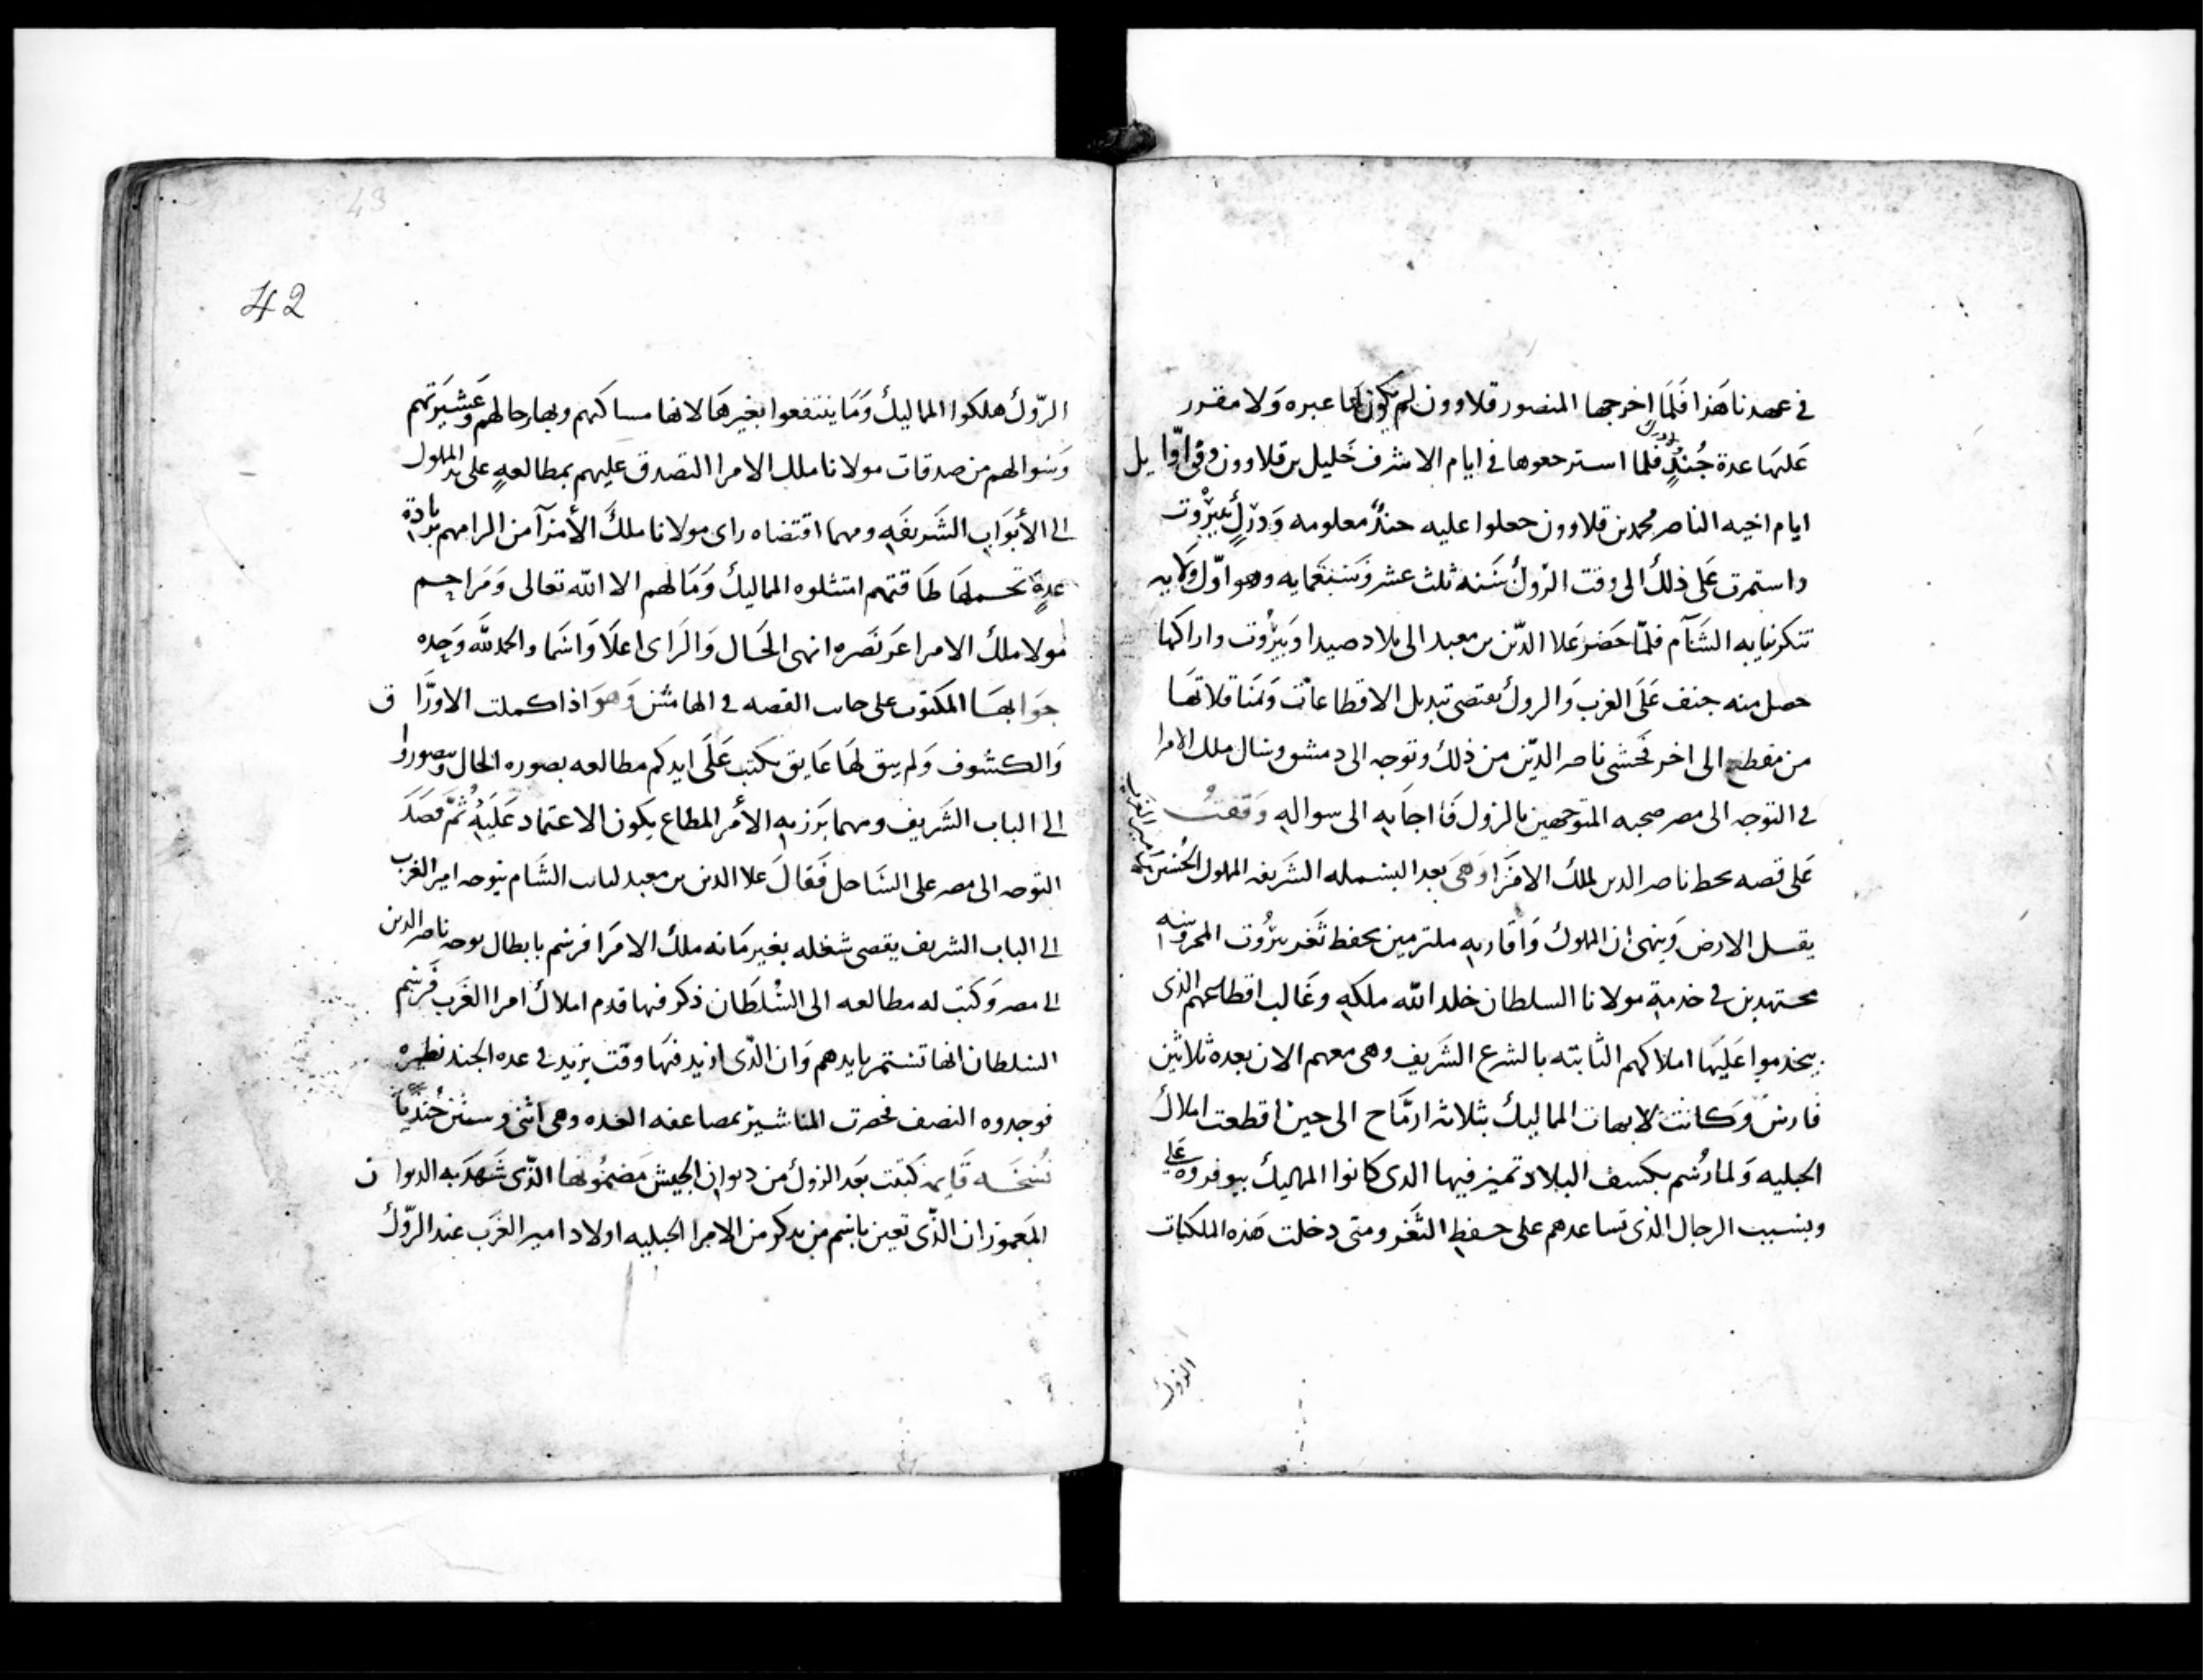 في عهدنا هذا فلما اخرجها المنصور قلاوون لم يكون لها عبره ولا مقرر
عليها عدة جند فلما استرجعوها في ايام الاشرف خليل بن قلاوون وفي اوايل
ايام اخيه الناصر محمد بن قلاوون جعلوا عليه جندًا معلومه ودرك بيروت
واستمرت على ذلك الى وقت الروك سنه ثلث عشر وسبعمايه وهو اول ولايه
تنكز نيابه الشآم فلمّا حضر علا الدّين بن معبد الى بلاد صيدا وبيروت واراكها
حصل منه جنف على الغرب والروك يقتضي تبديل الاقطاعات ومناقلاتها
من مقطع الى اخر فخشي ناصر الديّن من ذلك وتوجه الى دمشق وسال ملك الامرا
في التوجه الى مصر صحبه المتوجهين بالروك فااجابه الى سواله وقفت
على قصه بخط ناصر الدين لملك الامرا وهي بعد البسمله الشريفه المملوك الحسين امير الغرب
يقبل الارض وينهي ان المملوك واقاربه ملتزمين بحفظ ثغر بيروت المحروسه
مجتهدين في خدمة مولانا السلطان خلد الله ملكه وغالب اقطاعهم الذي
يخدموا عليها املاكهم الثابته بالشرع الشريف وهي معهم الان بعدة ثلاثين
فارس وكانت لابهات المماليك بثلاثه ارماح الى حين اقطعت املاك
الجبليه ولما رُسم بكسف البلاد تميز فيها الدى كانوا المماليك بيوفروه على
وبسبب الرجال الذي تساعدهم على حفظ الثغر ومتى دخلت هذه الملكيات
الروك
42
الروك هلكوا المماليك وما ينتفعوا بغيرها لانها مساكنهم وبها رجالهم وعشيرتهم
وسوالهم من صدقات مولانا ملك الامرا التصدق عليهم بمطالعه على يد المملوك
الى الأبواب الشريفه ومهما اقتضاه راى مولانا ملك الأمرآ من الزامهم بزيادة
عدة تحملها طاقتهم امتثلوه المماليك وما لهم الا الله تعالى ومراحم
مولا ملك الامرا عز نصره انهى الحال والراى اعلا واسما والحمد لله وحده
جوابها المكتوب على جانب القصه في الهامش وهو اذا كملت الاوراق
والكشوف ولم يبق لها عايق يكتب على ايدكم مطالعه بصوره الحال وتصوروا
الى الباب الشريف ومهما برز به الأمر المطاع يكون الاعتماد عليه ثم قصد
التوجه الى مصر على الساحل فقال علا الدين بن معبد لنايب الشام يتوجه امير الغرب
الى الباب الشريف يقضي شغله بغير مانه ملك الامرا فرسم بابطال توجه ناصر الدين
الى مصر وكتب له مطالعه الى السلطان ذكر فيها قدم املاك امرا الغرب فرسم
السلطان انها تستمر بايدهم وان الذّى ازيد فيها وقت يزيد في عده الجند نظيره
فوجدوه النصف فخرجت المناشير بمضاعفه العده وهي اثنى وستين جنديًا
نسخه قايمه كتبت بعد الروك من ديوان الجيش مضمونها الذّى شهد به الديوان
المعمور ان الذّى تعين باسم من يذكر من الامرا الجبليه اولاد امير الغرب عند الروّك